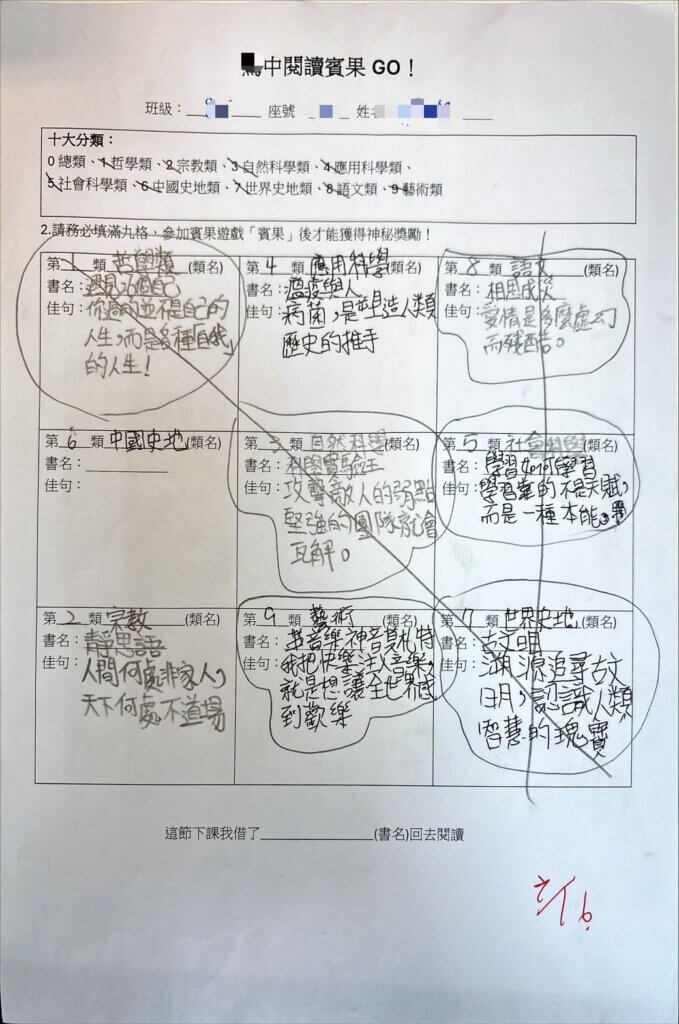 中閱讀賓果 GO！
班級： 座號 姓名
十大分類：
0 總類、1 哲學類、2 宗教類、3 自然科學類、4 應用科學類、
5 社會科學類、6 中國史地類、7 世界史地類、8 語文類、9 藝術類
2.請務必填滿九格，參加賓果遊戲「賓果」後才能獲得神秘獎勵！
第 1 類 哲學類 (類名)
書名：遇見26個自己
佳句：你過的並不是自己的
人生，而是多種「自我」
的人生！
第 4 類 應用科學 (類名)
書名：瘟疫與人
佳句：病菌，是塑造人類
歷史的推手
第 8 類 語文 (類名)
書名：相思成災
佳句：愛情是多麼虛幻
而殘酷。
第 6 類 中國史地 (類名)
書名：
佳句：
第 3 類 自然科學 (類名)
書名：科學實驗王
佳句：攻擊敵人的弱點
堅強的團隊就會
瓦解。
第 5 類 社會科學 (類名)
書名：學習如何學習
佳句：學習靠的不是天賦，
而是一種本能。
第 2 類 宗教 (類名)
書名：靜思語
佳句：人間何處非家人，
天下何處不道場
第 9 類 藝術 (類名)
書名：革音樂神音莫札特
佳句：我把快樂注入音樂，
就是想讓全世界感
到歡樂
第 7 類 世界史地 (類名)
書名：古文明
佳句：溯源追尋古文
明，認識人類
智慧的瑰寶
這節下課我借了 (書名)回去閱讀